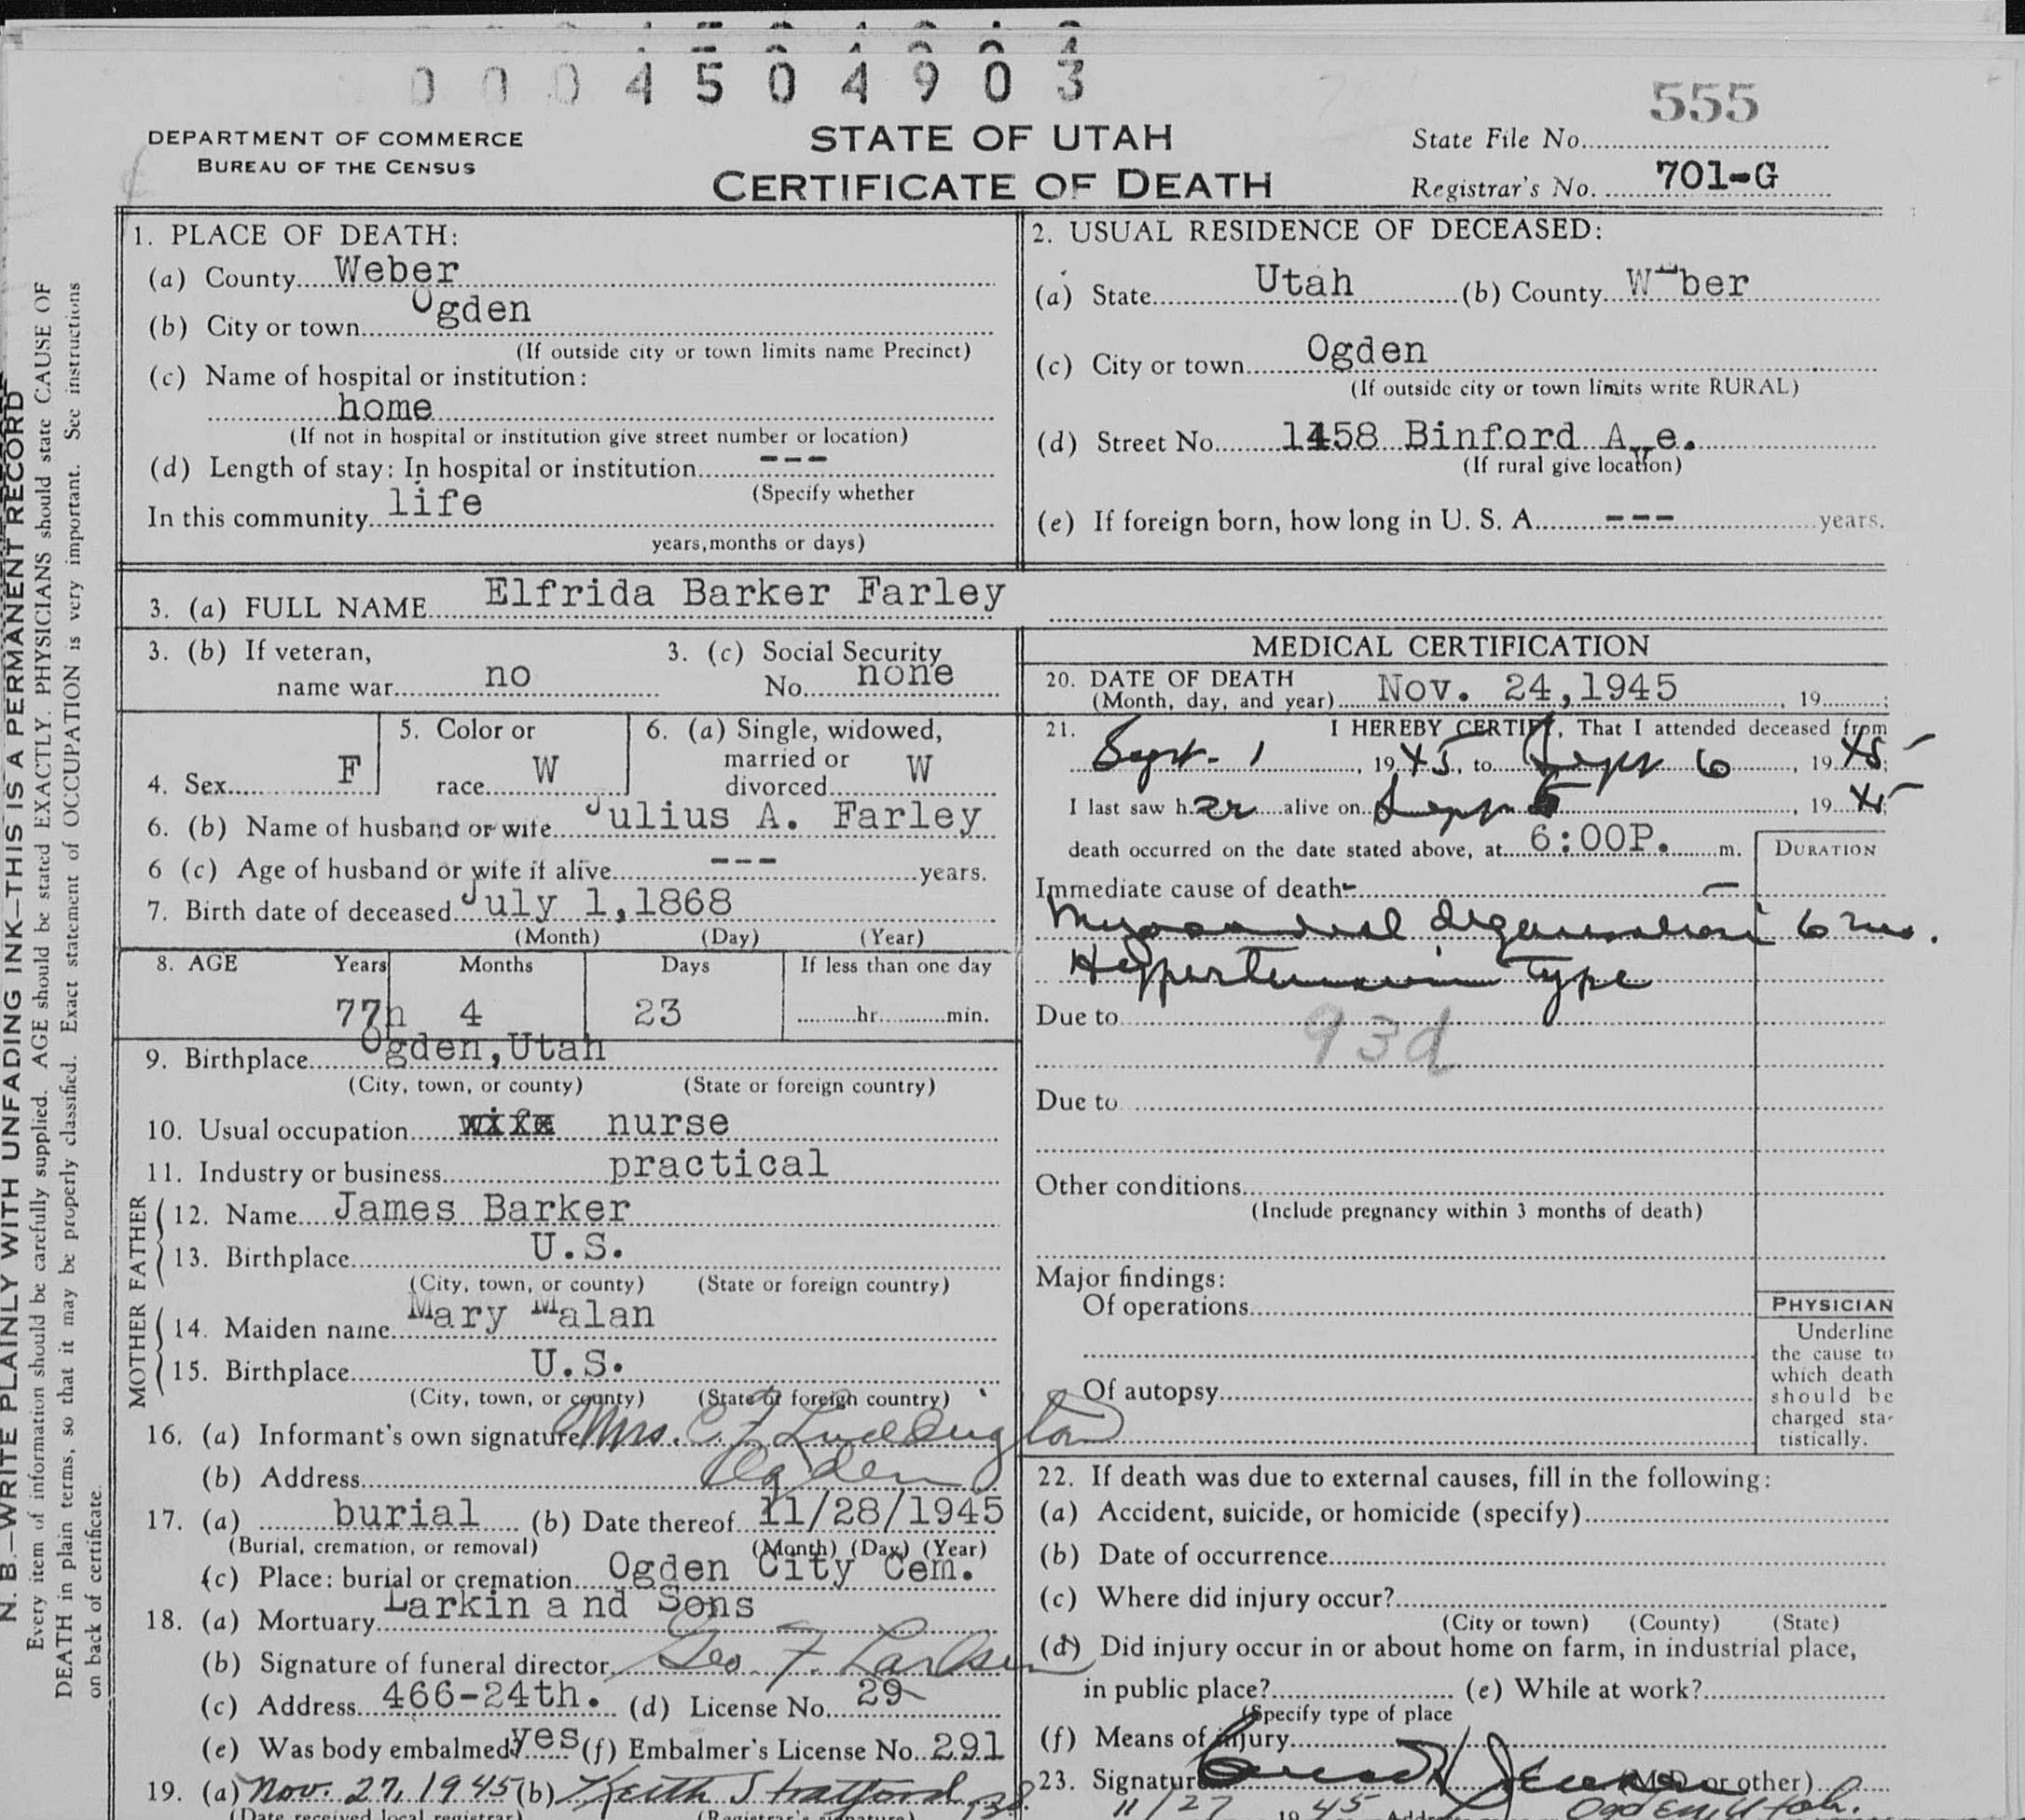 0 0 0 4 5 0 4 9 0 3
555
DEPARTMENT OF COMMERCE
BUREAU OF THE CENSUS
STATE OF UTAH
CERTIFICATE OF DEATH
State File No.
Registrar's No. 701-G
N. B.—WRITE PLAINLY WITH UNFADING INK—THIS IS A PERMANENT RECORD
Every item of information should be carefully supplied. AGE should be stated EXACTLY. PHYSICIANS should state CAUSE OF
DEATH in plain terms, so that it may be properly classified. Exact statement of OCCUPATION is very important. See instructions
on back of certificate.
1. PLACE OF DEATH:
(a) County Weber
(b) City or town Ogden
(If outside city or town limits name Precinct)
(c) Name of hospital or institution:
home
(If not in hospital or institution give street number or location)
(d) Length of stay: In hospital or institution ---
(Specify whether
In this community life
years, months or days)
2. USUAL RESIDENCE OF DECEASED:
(a) State Utah (b) County Weber
(c) City or town Ogden
(If outside city or town limits write RURAL)
(d) Street No. 1458 Binford Ave.
(If rural give location)
(e) If foreign born, how long in U. S. A. --- years.
3. (a) FULL NAME Elfrida Barker Farley
3. (b) If veteran,
name war no
3. (c) Social Security
No. none
4. Sex F
5. Color or
race W
6. (a) Single, widowed,
married or
divorced W
6. (b) Name of husband or wife Julius A. Farley
6 (c) Age of husband or wife if alive --- years.
7. Birth date of deceased July 1, 1868
(Month) (Day) (Year)
8. AGE Years Months Days If less than one day
77h 4 23 hr. min.
9. Birthplace Ogden, Utah
(City, town, or county) (State or foreign country)
10. Usual occupation wife nurse
11. Industry or business practical
FATHER
12. Name James Barker
13. Birthplace U.S.
(City, town, or county) (State or foreign country)
MOTHER
14. Maiden name Mary Malan
15. Birthplace U.S.
(City, town, or county) (State or foreign country)
16. (a) Informant's own signature Mrs. C. F. Luddington
(b) Address Ogden
17. (a) burial (b) Date thereof 11/28/1945
(Burial, cremation, or removal) (Month) (Day) (Year)
(c) Place: burial or cremation Ogden City Cem.
18. (a) Mortuary Larkin and Sons
(b) Signature of funeral director Geo. F.
(c) Address 466-24th. (d) License No. 29
(e) Was body embalmed? yes (f) Embalmer's License No. 291
19. (a) Nov. 27, 1945 (b) Keith Stratford
(Date received local registrar) (Registrar's signature)
MEDICAL CERTIFICATION
20. DATE OF DEATH
(Month, day, and year) Nov. 24, 1945, 19 ;
21. I HEREBY CERTIFY, That I attended deceased from
Sept. 1, 1945, to Sept 6, 1945;
I last saw her alive on Sept 5, 1945;
death occurred on the date stated above, at 6:00P. m.
DURATION
Immediate cause of death
Myocardial degeneration 6 mo.
Hypertension type
Due to 93d
Due to
Other conditions
(Include pregnancy within 3 months of death)
Major findings:
Of operations
Of autopsy
PHYSICIAN
Underline
the cause to
which death
should be
charged sta-
tistically.
22. If death was due to external causes, fill in the following:
(a) Accident, suicide, or homicide (specify)
(b) Date of occurrence
(c) Where did injury occur?
(City or town) (County) (State)
(d) Did injury occur in or about home on farm, in industrial place,
in public place? (e) While at work?
(Specify type of place
(f) Means of injury
23. Signature (M.D. or other)
11/27 1945 Address Ogden, Utah.